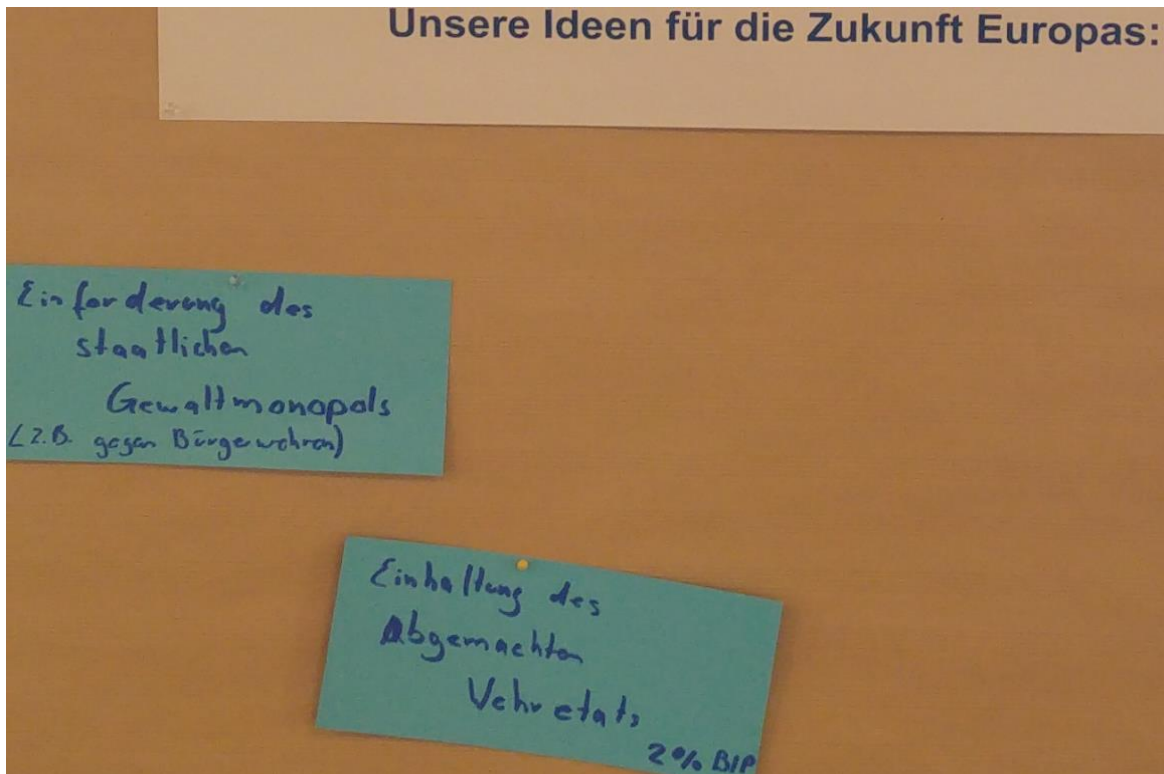 Unsere Ideen für die Zukunft Europas:
Einforderung des
staatlichen
Gewaltmonopols
(z.B. gegen Bürgerwehren)
Einhaltung des
Abgemachten
Vehretats
2% BIP